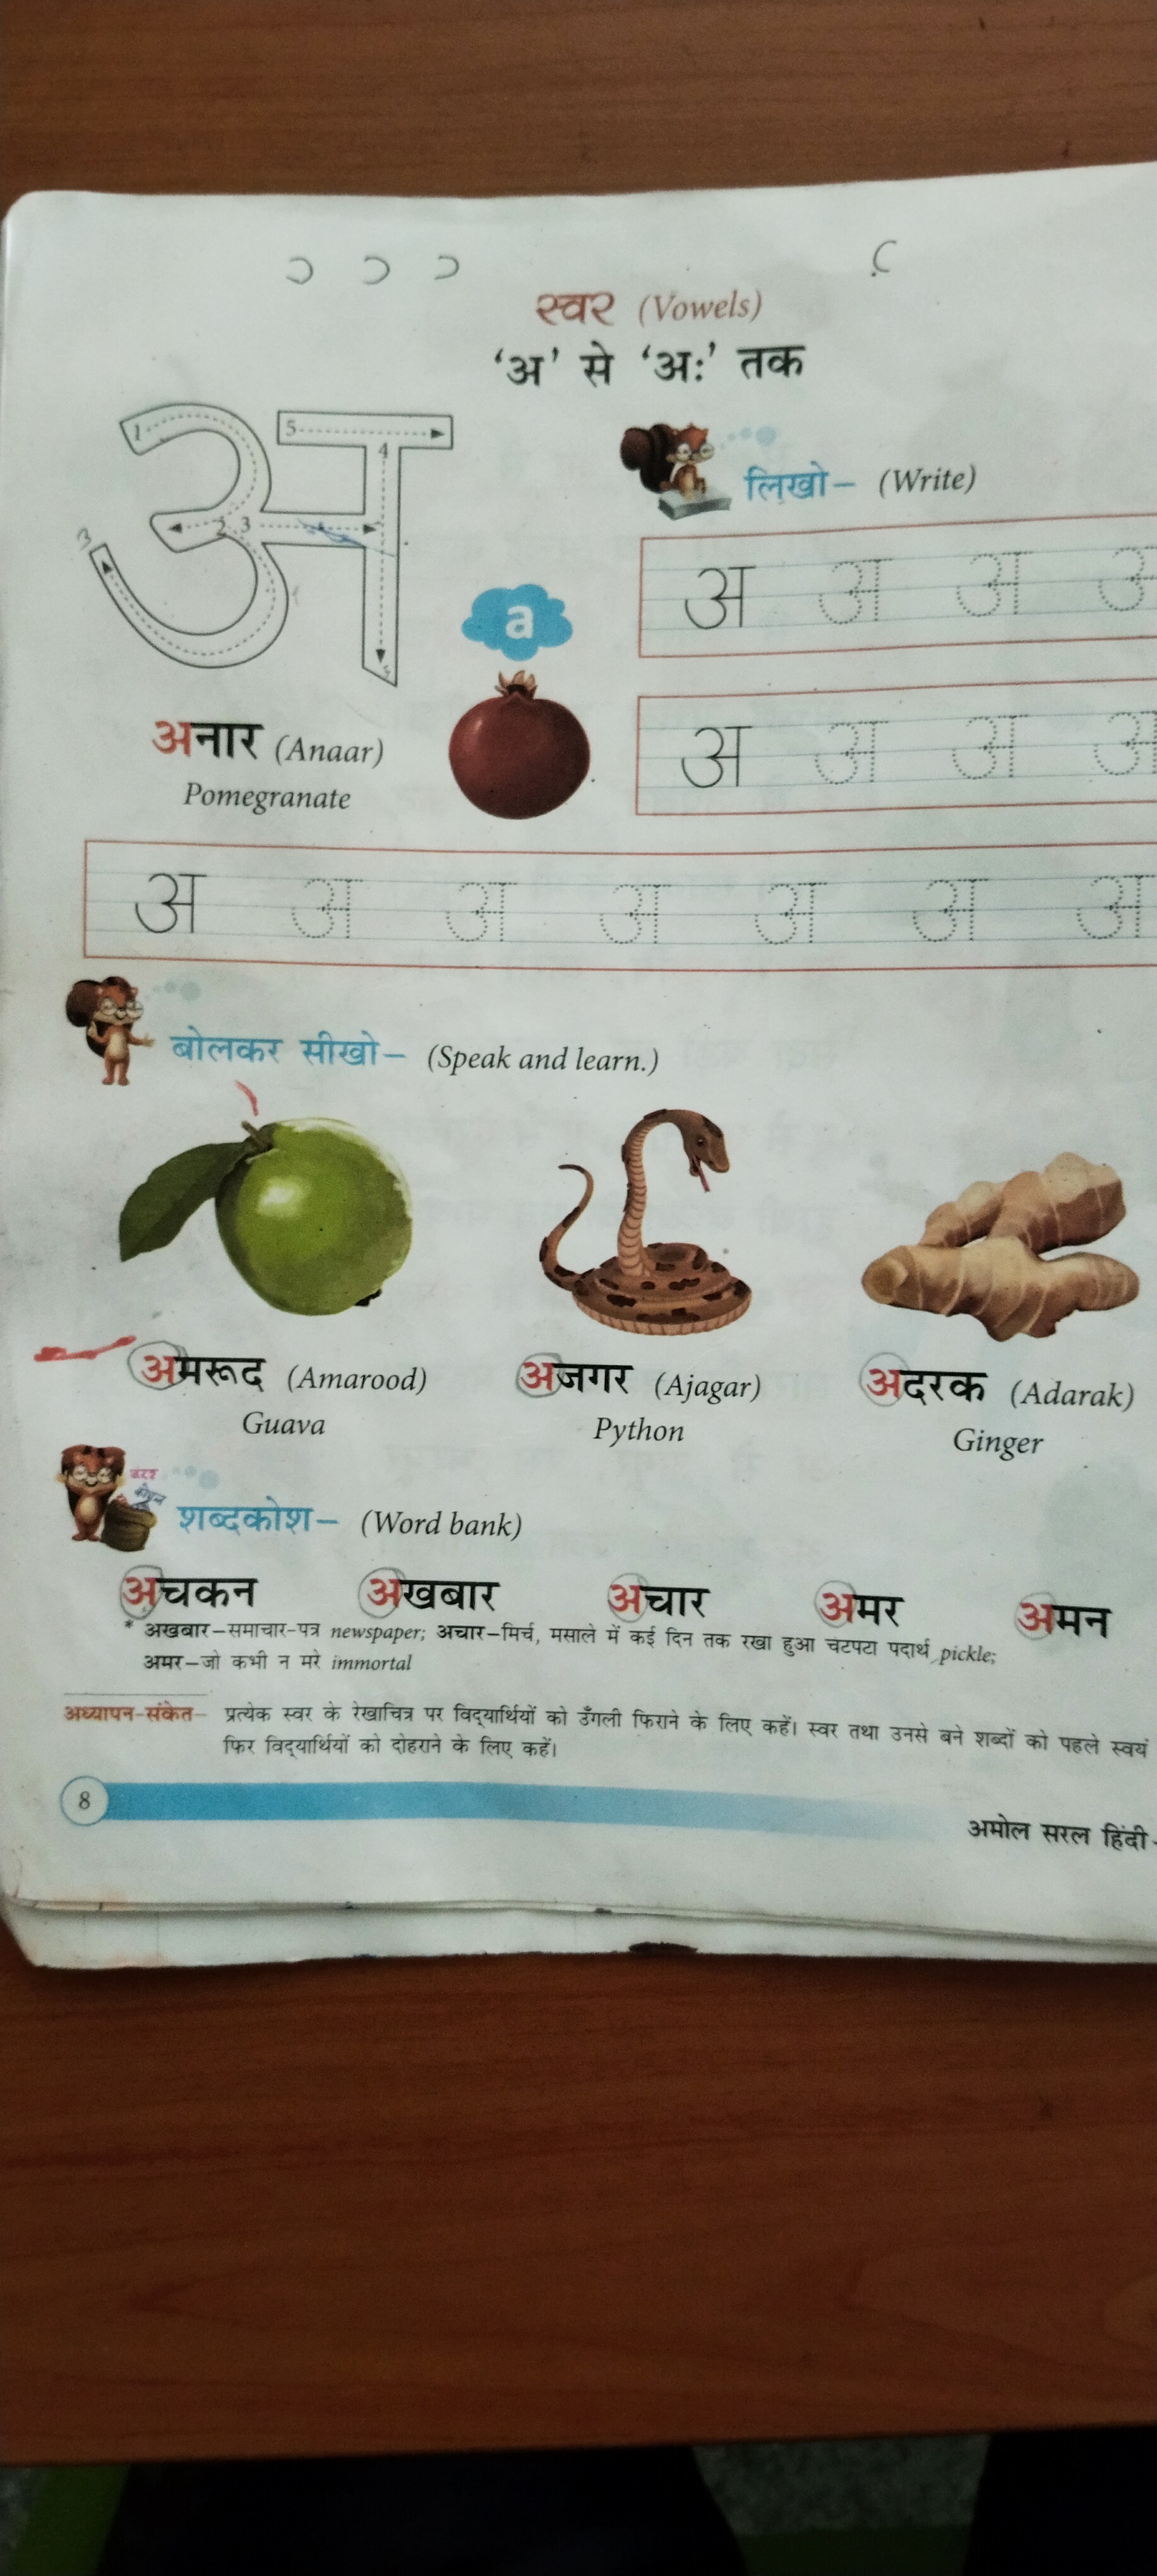 स्वर (Vowels)
‘अ’ से ‘अः’ तक
1 5 4 2 3
3
a
लिखो– (Write)
अ अ अ अ
अ अ अ अ
अनार (Anaar)
Pomegranate
अ अ अ अ अ अ अ
बोलकर सीखो– (Speak and learn.)
अमरूद (Amarood) अजगर (Ajagar) अदरक (Adarak)
Guava Python Ginger
शब्दकोश– (Word bank)
अचकन अखबार अचार अमर अमन
* अखबार–समाचार-पत्र newspaper; अचार–मिर्च, मसाले में कई दिन तक रखा हुआ चटपटा पदार्थ pickle;
अमर–जो कभी न मरे immortal
अध्यापन-संकेत– प्रत्येक स्वर के रेखाचित्र पर विद्यार्थियों को उँगली फिराने के लिए कहें। स्वर तथा उनसे बने शब्दों को पहले स्वयं
फिर विद्यार्थियों को दोहराने के लिए कहें।
8
अमोल सरल हिंदी-